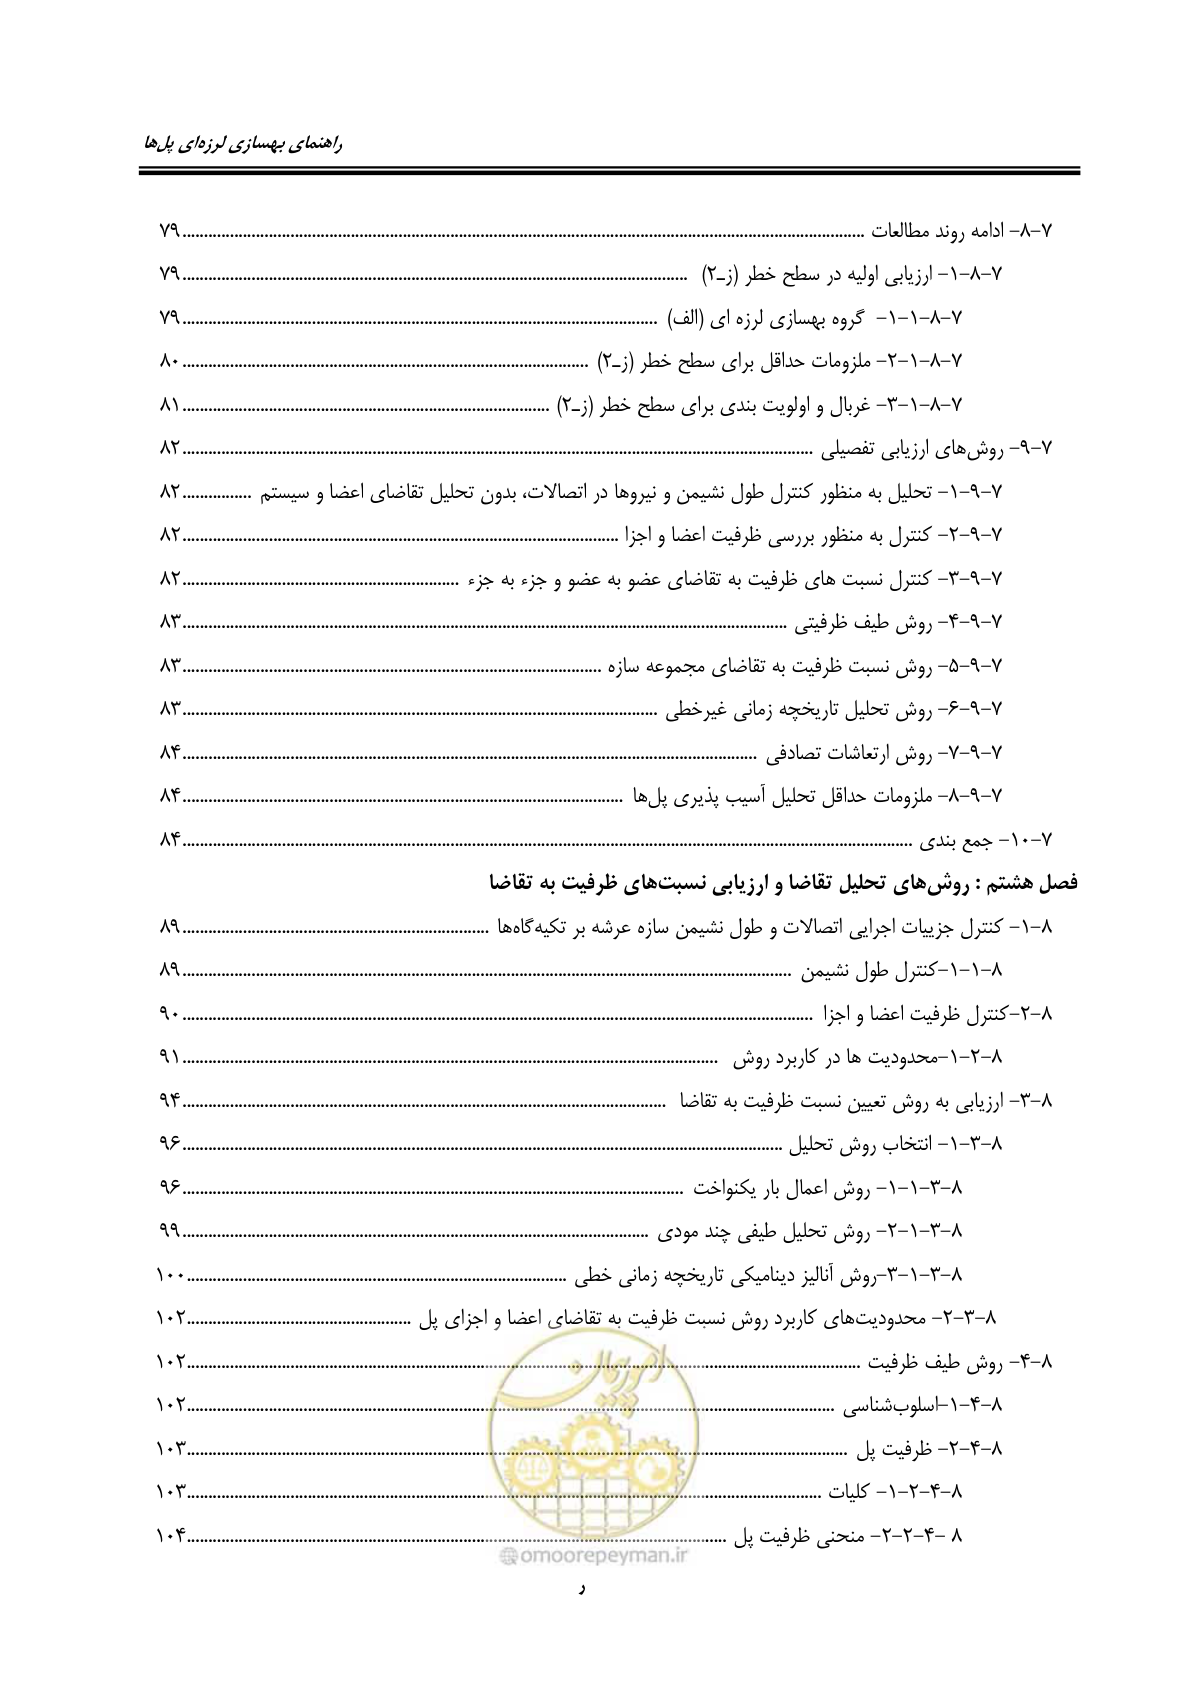 راهنمای بهسازی لرزه‌ای پل‌ها
۷-۸- ادامه روند مطالعات ........ ۷۹
۷-۸-۱- ارزیابی اولیه در سطح خطر (زـ۲) ........ ۷۹
۷-۸-۱-۱- گروه بهسازی لرزه ای (الف) ........ ۷۹
۷-۸-۱-۲- ملزومات حداقل برای سطح خطر (زـ۲) ........ ۸۰
۷-۸-۱-۳- غربال و اولویت بندی برای سطح خطر (زـ۲) ........ ۸۱
۷-۹- روش‌های ارزیابی تفصیلی ........ ۸۲
۷-۹-۱- تحلیل به منظور کنترل طول نشیمن و نیروها در اتصالات، بدون تحلیل تقاضای اعضا و سیستم ........ ۸۲
۷-۹-۲- کنترل به منظور بررسی ظرفیت اعضا و اجزا ........ ۸۲
۷-۹-۳- کنترل نسبت های ظرفیت به تقاضای عضو به عضو و جزء به جزء ........ ۸۲
۷-۹-۴- روش طیف ظرفیتی ........ ۸۳
۷-۹-۵- روش نسبت ظرفیت به تقاضای مجموعه سازه ........ ۸۳
۷-۹-۶- روش تحلیل تاریخچه زمانی غیرخطی ........ ۸۳
۷-۹-۷- روش ارتعاشات تصادفی ........ ۸۴
۷-۹-۸- ملزومات حداقل تحلیل آسیب پذیری پل‌ها ........ ۸۴
۷-۱۰- جمع بندی ........ ۸۴
فصل هشتم : روش‌های تحلیل تقاضا و ارزیابی نسبت‌های ظرفیت به تقاضا
۸-۱- کنترل جزییات اجرایی اتصالات و طول نشیمن سازه عرشه بر تکیه‌گاه‌ها ........ ۸۹
۸-۱-۱-کنترل طول نشیمن ........ ۸۹
۸-۲-کنترل ظرفیت اعضا و اجزا ........ ۹۰
۸-۲-۱-محدودیت ها در کاربرد روش ........ ۹۱
۸-۳- ارزیابی به روش تعیین نسبت ظرفیت به تقاضا ........ ۹۴
۸-۳-۱- انتخاب روش تحلیل ........ ۹۶
۸-۳-۱-۱- روش اعمال بار یکنواخت ........ ۹۶
۸-۳-۱-۲- روش تحلیل طیفی چند مودی ........ ۹۹
۸-۳-۱-۳-روش آنالیز دینامیکی تاریخچه زمانی خطی ........ ۱۰۰
۸-۳-۲- محدودیت‌های کاربرد روش نسبت ظرفیت به تقاضای اعضا و اجزای پل ........ ۱۰۲
۸-۴- روش طیف ظرفیت ........ ۱۰۲
۸-۴-۱-اسلوب‌شناسی ........ ۱۰۲
۸-۴-۲- ظرفیت پل ........ ۱۰۳
۸-۴-۲-۱- کلیات ........ ۱۰۳
۸ -۴-۲-۲- منحنی ظرفیت پل ........ ۱۰۴
امور پیمان
@omoorepeyman.ir
ر